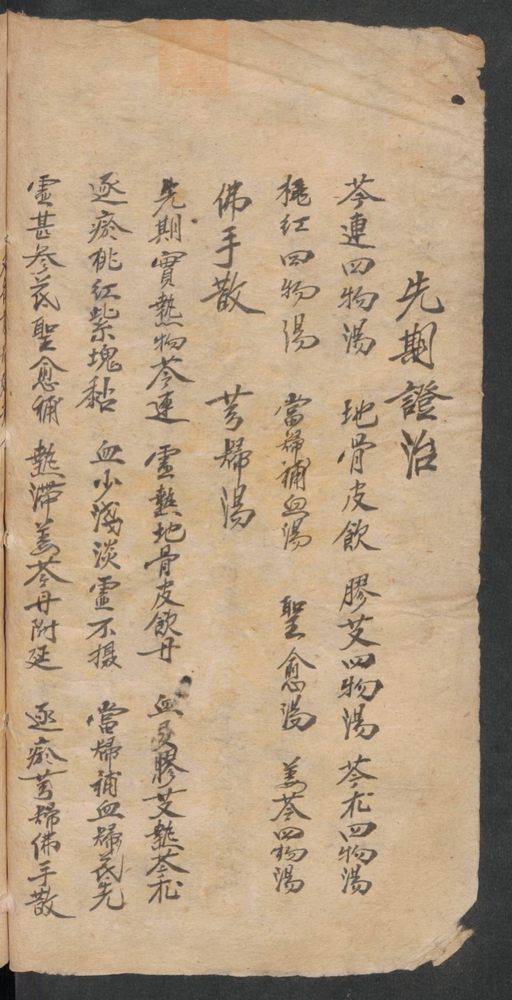 先期證治
芩連四物湯　地骨皮飲　膠艾四物湯　芩朮四物湯
桃紅四物湯　當歸補血湯　聖愈湯　姜芩四物湯
佛手散　芎歸湯
先期實熱物芩連　虛熱地骨皮飲丹　血多膠艾熱芩朮
逐瘀桃紅紫塊黏　血少淺淡虛不摄　當歸補血歸芪先
虛甚參芪聖愈補　熱滞姜芩丹附延　逐瘀芎歸佛手散